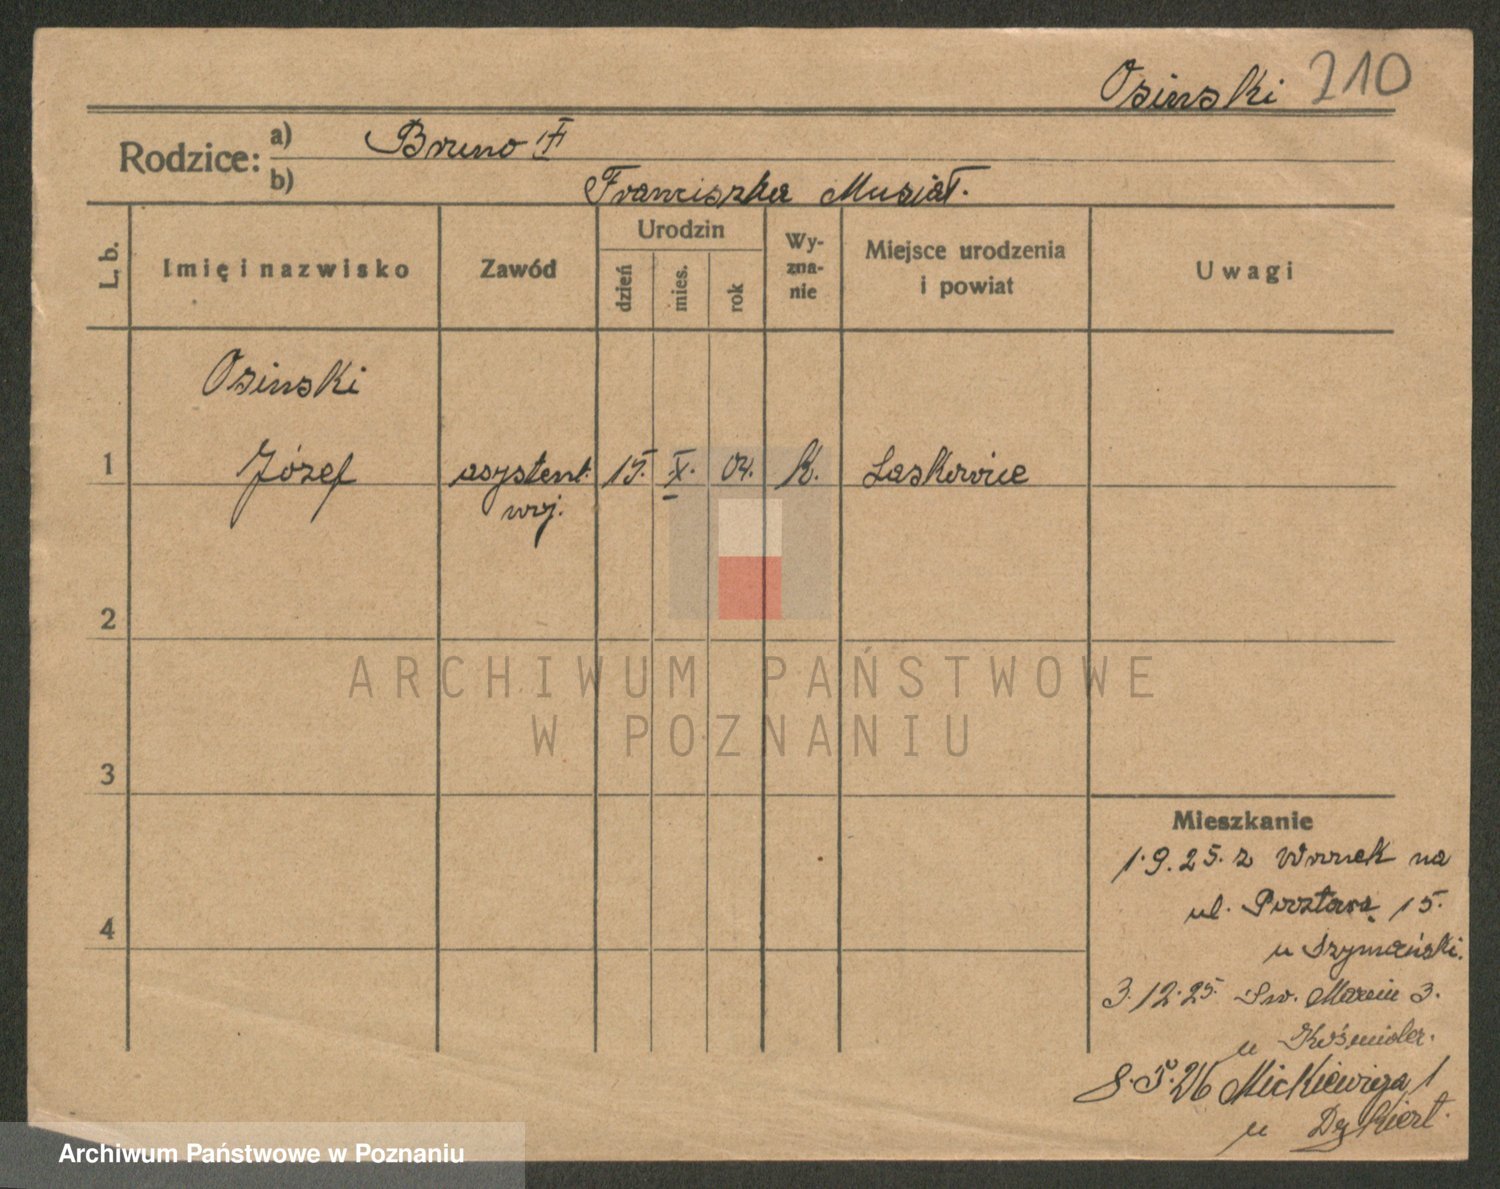 Osinski 210
Rodzice: a) Bruno
b) Franciszka Musiał.
L. b.
Imię i nazwisko
Zawód
Urodzin
dzień
mies.
rok
Wy-
zna-
nie
Miejsce urodzenia
i powiat
Uwagi
Osinski
1 Józef asystent. 15. X. 04. k. Laskowice
woj.
2
ARCHIWUM PAŃSTWOWE
W POZNANIU
3
Mieszkanie
1.9.25. z Wronek na
ul. Pocztową 15.
4
u Szymański.
3.12.25. Św. Marcin 3.
u
8.5.26 Mickiewicza 1
u
Archiwum Państwowe w Poznaniu